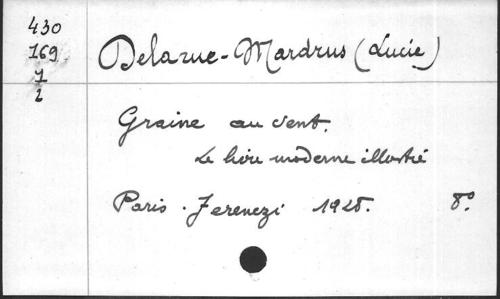 430
169
1
2
Delarue-Mardrus (Lucie)
Graine au vent.
Le livre moderne illustré
Paris. Ferenczi 1925. 8°